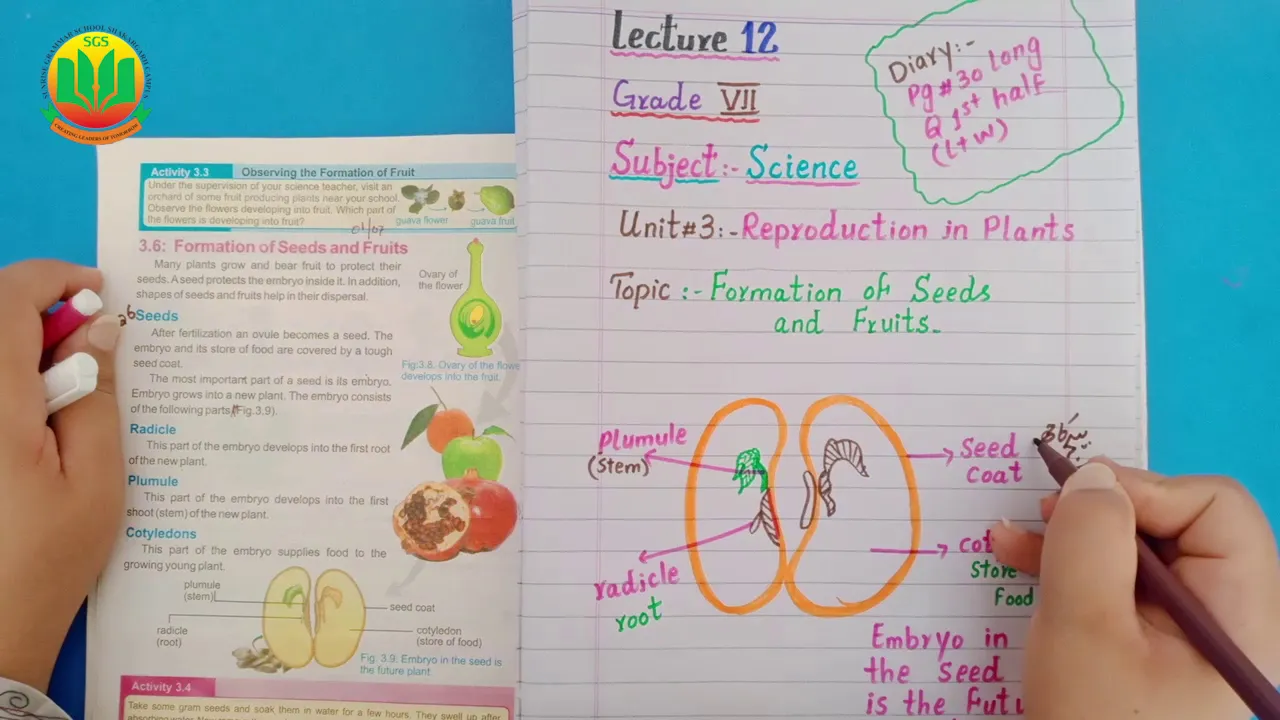 SUNRISE GRAMMAR SCHOOL SHAKARGARH CAMPUS
SGS
CREATING LEADERS OF TOMORROW
Activity 3.3 Observing the Formation of Fruit
Under the supervision of your science teacher, visit an
orchard of some fruit producing plants near your school.
Observe the flowers developing into fruit. Which part of
the flowers is developing into fruit?
guava flower
guava fruit
01/07
3.6: Formation of Seeds and Fruits
Many plants grow and bear fruit to protect their
seeds. A seed protects the embryo inside it. In addition,
shapes of seeds and fruits help in their dispersal.
Ovary of
the flower
Seeds
After fertilization an ovule becomes a seed. The
embryo and its store of food are covered by a tough
seed coat.
Fig:3.8. Ovary of the flowe
develops into the fruit.
The most important part of a seed is its embryo.
Embryo grows into a new plant. The embryo consists
of the following parts (Fig.3.9).
Radicle
This part of the embryo develops into the first root
of the new plant.
Plumule
This part of the embryo develops into the first
shoot (stem) of the new plant.
Cotyledons
This part of the embryo supplies food to the
growing young plant.
plumule
(stem)
seed coat
radicle
(root)
cotyledon
(store of food)
Fig. 3.9. Embryo in the seed is
the future plant
Activity 3.4
Take some gram seeds and soak them in water for a few hours. They swell up after
Lecture 12
Grade VII
Subject:- Science
Unit#3:- Reproduction in Plants
Topic:- Formation of Seeds
and Fruits.
Diary:-
Pg # 30 Long
Q 1st half
(L+W)
Plumule
(Stem)
Seed
Coat
radicle
root
cot
Store
Food
Embryo in
the Seed
is the Futu